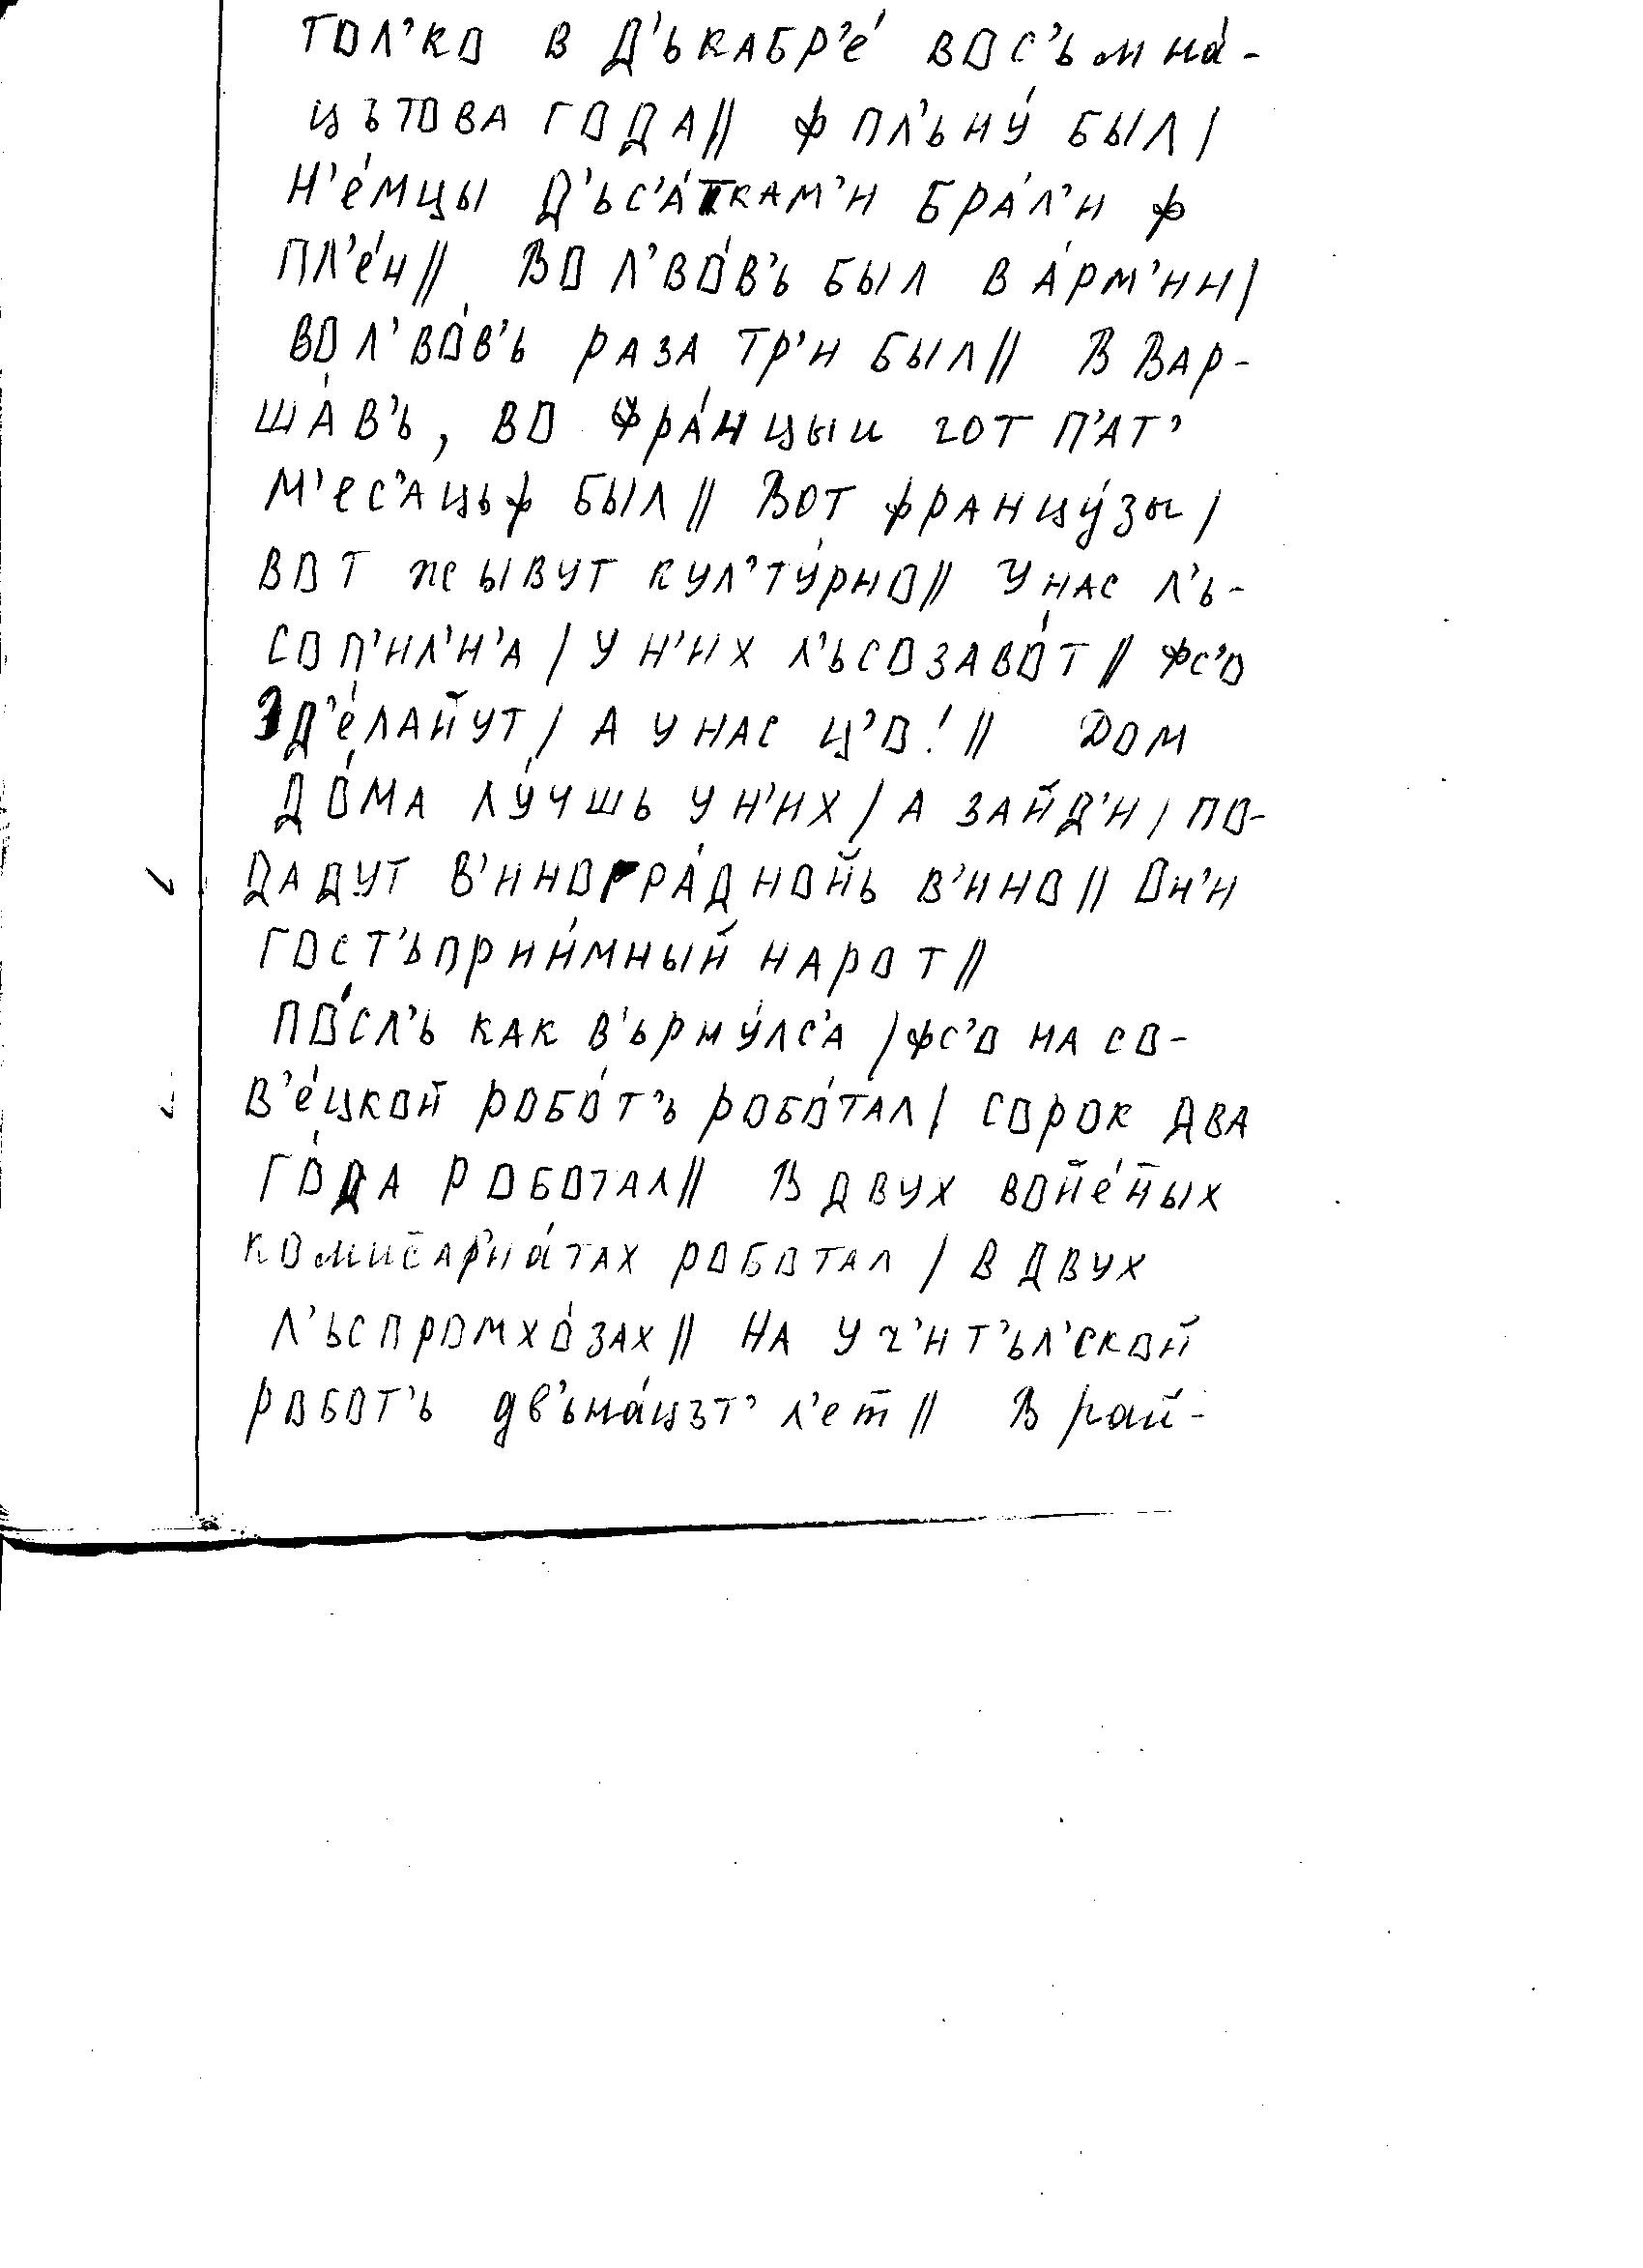 тол’ко в д’ькабр’е́ вос’ьмна́-
цътова года// ф пл’ьну́ был/
н’е́мцы д’ьс’а́ткам’и бра́л’и ф
пл’е́н// Во л’во́в’ь был в а́рм’ии/
во л’во́в’ь раза тр’и был// В Вар-
ша́в’ь, во фра́нцыи гот п’ат’
м’ес’ацьф был// Вот францу́зы/
вот жывут кул’ту́рно// У нас л’ь-
соп’ил’н’а/ у н’их л’ьсозаво́т// фс’о
зд’е́лайут/ а у нас ц’о!// Дом
до́ма лу́чшь у н’их/ а зайд’и/ по-
дадут в’иногра́дной̆ь в’ино// Он’и
гост’ьприи́мный нарот//
по́сл’ь как в’ърну́лс’а/ фс’о на со-
в’е́цкой робо́т’ь робо́тал/ сорок два
го́да роботал// В двух вой̆е́н̄ых
комис̄ариа́тах роботал/ в двух
л’ьспромхо́зах// На уч’ит’ьл’ской
робот’ь дв’ьна́цът’ л’ет// В рай-